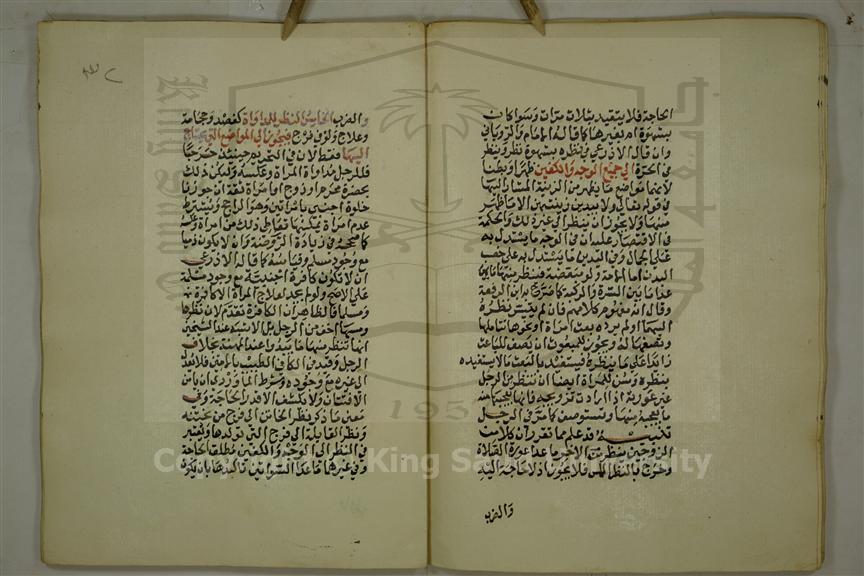 الحاجة فلا يتقيد بثلاث مرات وسوا كان
بشهوة ام لغيرها كما قاله الامام والروياني
وان قال الاذرعي في نظره بشهوة نظر وينظر
في الحرة الي جميع الوجه والكفين ظهرا وبطنا
لانهما مواضع ما يظهر من الزينة المشار اليها
في قوله تعالي ولا يبدين زينتهن الا ما ظهر
منها ولا يجوز ان ينظر الي غير ذلك والحكمة
في الاقتصار عليه ان في الوجه ما يستدل به
علي الجمال وفي اليدين ما يستدل به علي خصب
البدن اما الامة ولو مبعضة فينظر منها ما
عدا ما بين السرة والركبة كما صرح به ابن الرفعة
وقال انه مفهوم كلامهم فان لم يتيسر نظره
اليها او لم يرده بعث امراة او نحوها تتاملها
وتصفها له ويجوز للمبعوث ان يصف للباعث
زايدا علي ما ينظره فيستفيد بالبعث ما لا يستفيده
بنظره ويسن للمراة ايضا ان تنظر من الرجل
غير عورته اذا ارادت تزويجه فانها يعجبها منه
ما يعجبه منها وتستوصف كما مر في الرجل
تنبيه قد علم مما تقرر ان كلا من
الزوجين ينظر من الاخر ما عدا عورة الصلاة
وخرج بالنظر المس فلا يجوز اذ لا حاجة اليه
والضرب
والضرب الخامس النظر للمداواة كفصد وحجامة
وعلاج ولو في فرج فيجوز الي المواضع التي يحتاج
اليها فقط لان في التحريم حينئذ حرجا
فللرجل مداواة المراة وعكسه وليكن ذلك
بحضرة محرم او زوج او امراة ثقة ان جوزنا
خلوة اجنبي بامراتين وهو الراجح ويشترط
عدم امراة يمكنها تعاطي ذلك من امراة وعكسه
كما صححه في زيادة الروضة وان لا يكون ذميا
مع وجود مسلم وقياسه كما قاله الاذرعي
ان لا تكون كافرة اجنبية مع وجود مسلمة
علي الاصح ولو لم يجد لعلاج المراة الا كافرة
ومسلما فالظاهر ان الكافرة تقدم لان نظرها
ومسها اخف من الرجل بل الاشبه عند الشيخين
انها تنظر منها ما يبدو عند المهنة بخلاف
الرجل وقيد في الكافي الطبيب بالامين فلا يعدل
الي غيره مع وجوده وشرط الماوردي ان يامن
الافتتان ولا يكشف الا قدر الحاجة وفي
معني ما ذكر نظر الخاتن الي فرج من يختنه
ونظر القابلة الي فرج التي تولدها ويعتبر
في النظر الي الوجه والكفين مطلق الحاجة
وفي غيرهما ما عدا السواتين تاكدها بان يكون
Copyright © King Saud University
1957